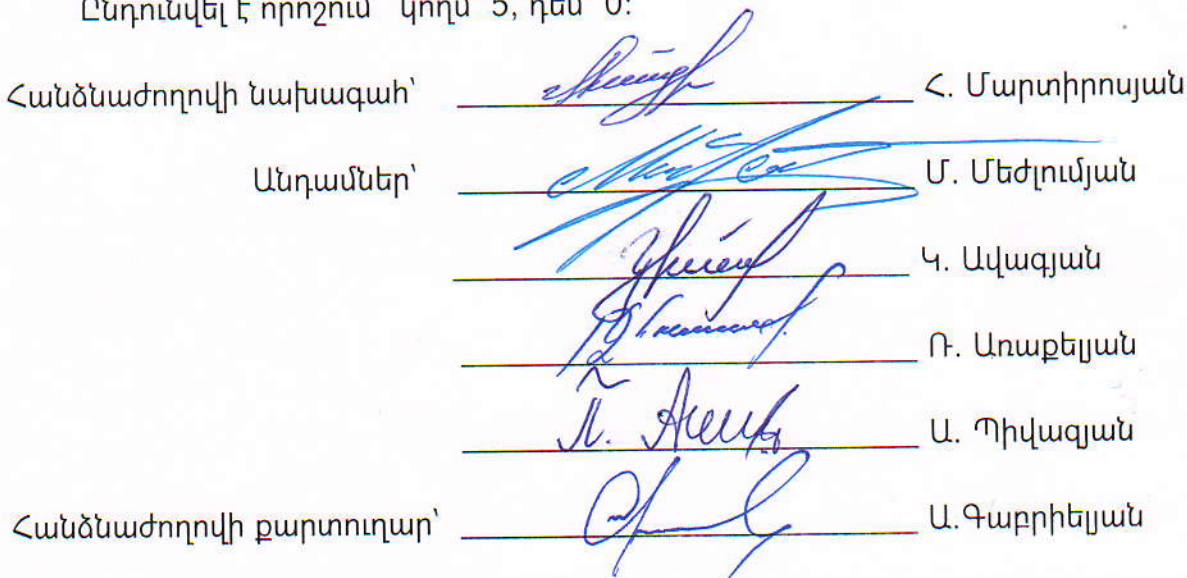 Ընդունվել է որոշում՝ կողմ՝ 5, դեմ՝ 0:
Հանձնաժողովի նախագահ՝ Հ. Մարտիրոսյան
Անդամներ՝ Մ. Մեժլումյան
Կ. Ավագյան
Ռ. Առաքելյան
Ա. Պիվազյան
Հանձնաժողովի քարտուղար՝ Ա.Գաբրիելյան